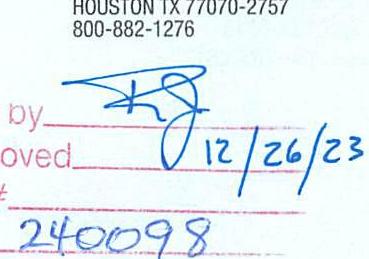 HOUSTON TX 77070-2757
800-882-1276
by
oved 12/26/23
#
240098